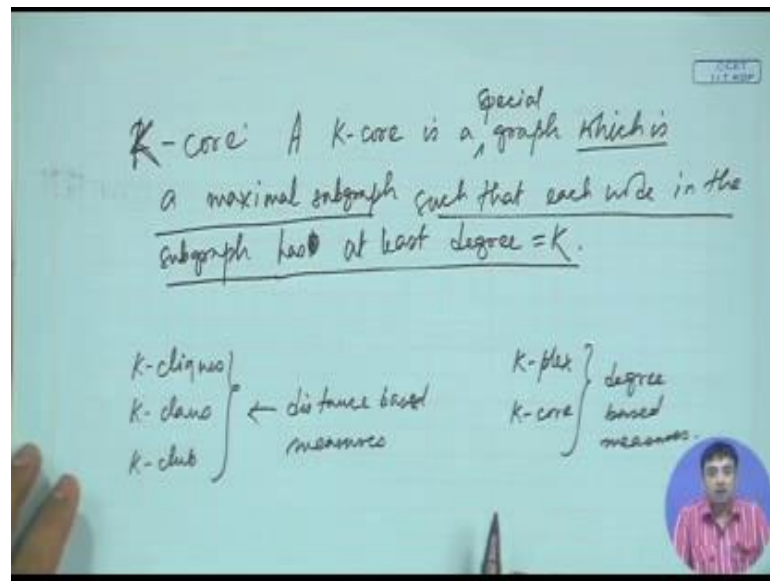 K-core: A K-core is a special graph which is
a maximal subgraph such that each node in the
subgraph has at least degree = K.
K-cliques
K-clans
K-club
← distance based
measures
K-plex
K-core
degree
based
measures.